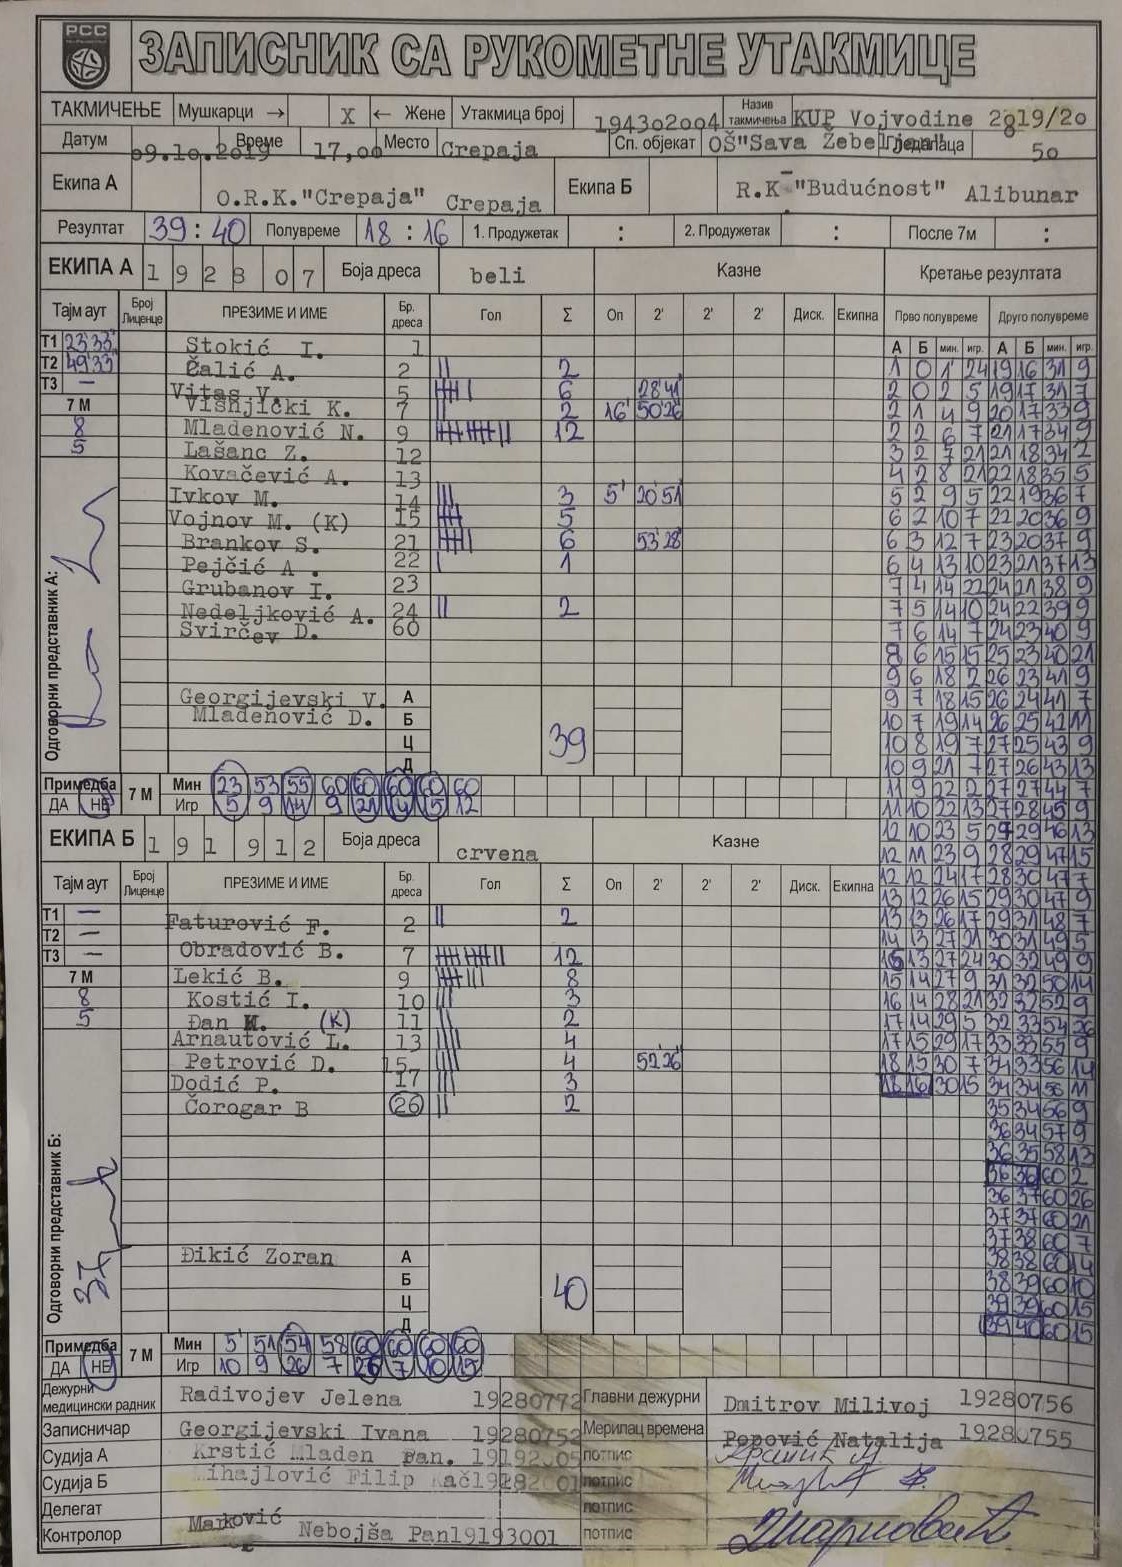 РСС
ЗАПИСНИК СА РУКОМЕТНЕ УТАКМИЦЕ
ТАКМИЧЕЊЕ Мушкарци → X ← Жене Утакмица број 194302004 Назив такмичења KUP Vojvodine 2019/20
Датум 09.10.2019 Време 17,00 Место Crepaja Сп. објекат OŠ"Sava Žebeljan" Гледалаца 50
Екипа А O.R.K."Crepaja" Crepaja Екипа Б R.K "Budućnost" Alibunar
Резултат 39:40 Полувреме 18:16 1. Продужетак : 2. Продужетак : После 7м :
ЕКИПА А 1 9 2 8 0 7 Боја дреса beli Казне Кретање резултата
Тајм аут Број Лиценце ПРЕЗИМЕ И ИМЕ Бр. дреса Гол Σ Оп 2' 2' 2' Диск. Екипна Прво полувреме Друго полувреме
А Б мин. игр. А Б мин. игр.
T1 23 33' Stokić I. 1
T2 49'33" Čalić A. 2 2
T3 — Vitas V. 5 6 28'41"
7 М Višnjički K. 7 2 16' 50'26
8 Mladenović N. 9 12
5 Lašanc Z. 12
Kovačević A. 13
Ivkov M. 14 3 5' 20'51
Vojnov M. (K) 15 5
Brankov S. 21 6 53'28
Pejčić A . 22 1
Grubanov I. 23
Nedeljković A. 24 2
Svirčev D. 60
Одговорни представник А:
Georgijevski V. А
Mladenović D. Б
Ц 39
Д
Примедба ДА НЕ 7 М
Мин 23 53 55 60 60 60 60 60
Игр 5 9 14 9 21 14 15 12
1 0 1' 24 19 16 31 9
2 0 2 5 19 17 31 7
2 1 4 9 20 17 33 9
2 2 6 7 21 17 34 9
3 2 7 21 21 18 34 2
4 2 8 21 22 18 35 5
5 2 9 5 22 19 36 7
6 2 10 7 22 20 36 9
6 3 12 7 23 20 37 9
6 4 13 10 23 21 37 13
7 4 14 22 24 21 38 9
7 5 14 10 24 22 39 9
7 6 14 7 24 23 40 9
8 6 15 15 25 23 40 21
9 6 18 2 26 23 41 9
9 7 18 15 26 24 41 7
10 7 19 14 26 25 42 11
10 8 19 7 27 25 43 9
10 9 21 7 27 26 43 13
11 9 22 2 27 27 44 7
11 10 22 13 27 28 45 9
12 10 23 5 27 29 46 13
12 11 23 9 28 29 47 15
12 12 24 17 28 30 47 7
13 12 26 15 29 30 47 9
13 13 26 17 29 31 48 7
14 13 27 21 30 31 49 5
15 13 27 24 30 32 49 9
15 14 27 9 31 32 50 14
16 14 28 21 32 32 52 9
17 14 29 5 32 33 54 26
17 15 29 17 33 33 55 9
18 15 30 7 34 33 56 14
18 16 30 15 34 34 56 11
35 34 56 9
36 34 57 9
36 35 58 13
36 36 60 2
36 37 60 26
37 37 60 21
37 38 60 7
38 38 60 14
38 39 60 10
39 39 60 15
39 40 60 15
ЕКИПА Б 1 9 1 9 1 2 Боја дреса crvena Казне
Тајм аут Број Лиценце ПРЕЗИМЕ И ИМЕ Бр. дреса Гол Σ Оп 2' 2' 2' Диск. Екипна
T1 — Faturović F. 2 2
T2 —
T3 — Obradović B. 7 12
7 М Lekić B. 9 8
8 Kostić I. 10 3
5 Đan M. (K) 11 2
Arnautović L. 13 4
Petrović D. 15 4 52'26"
Dodić P. 17 3
Čorogar B 26 2
Одговорни представник Б:
Đikić Zoran А
Б
Ц 40
Д
Примедба ДА НЕ 7 М
Мин 5' 51 54 58 60 60 60 60
Игр 10 9 26 7 26 7 10 15
Дежурни медицински радник Radivojev Jelena 19280772 Главни дежурни Dmitrov Milivoj 19280756
Записничар Georgijevski Ivana 19280752 Мерилац времена Popović Natalija 19280755
Судија А Krstić Mladen Pan. потпис
Судија Б Mihajlović Filip потпис
Делегат потпис
Контролор Marković Nebojša Pan19193001 потпис